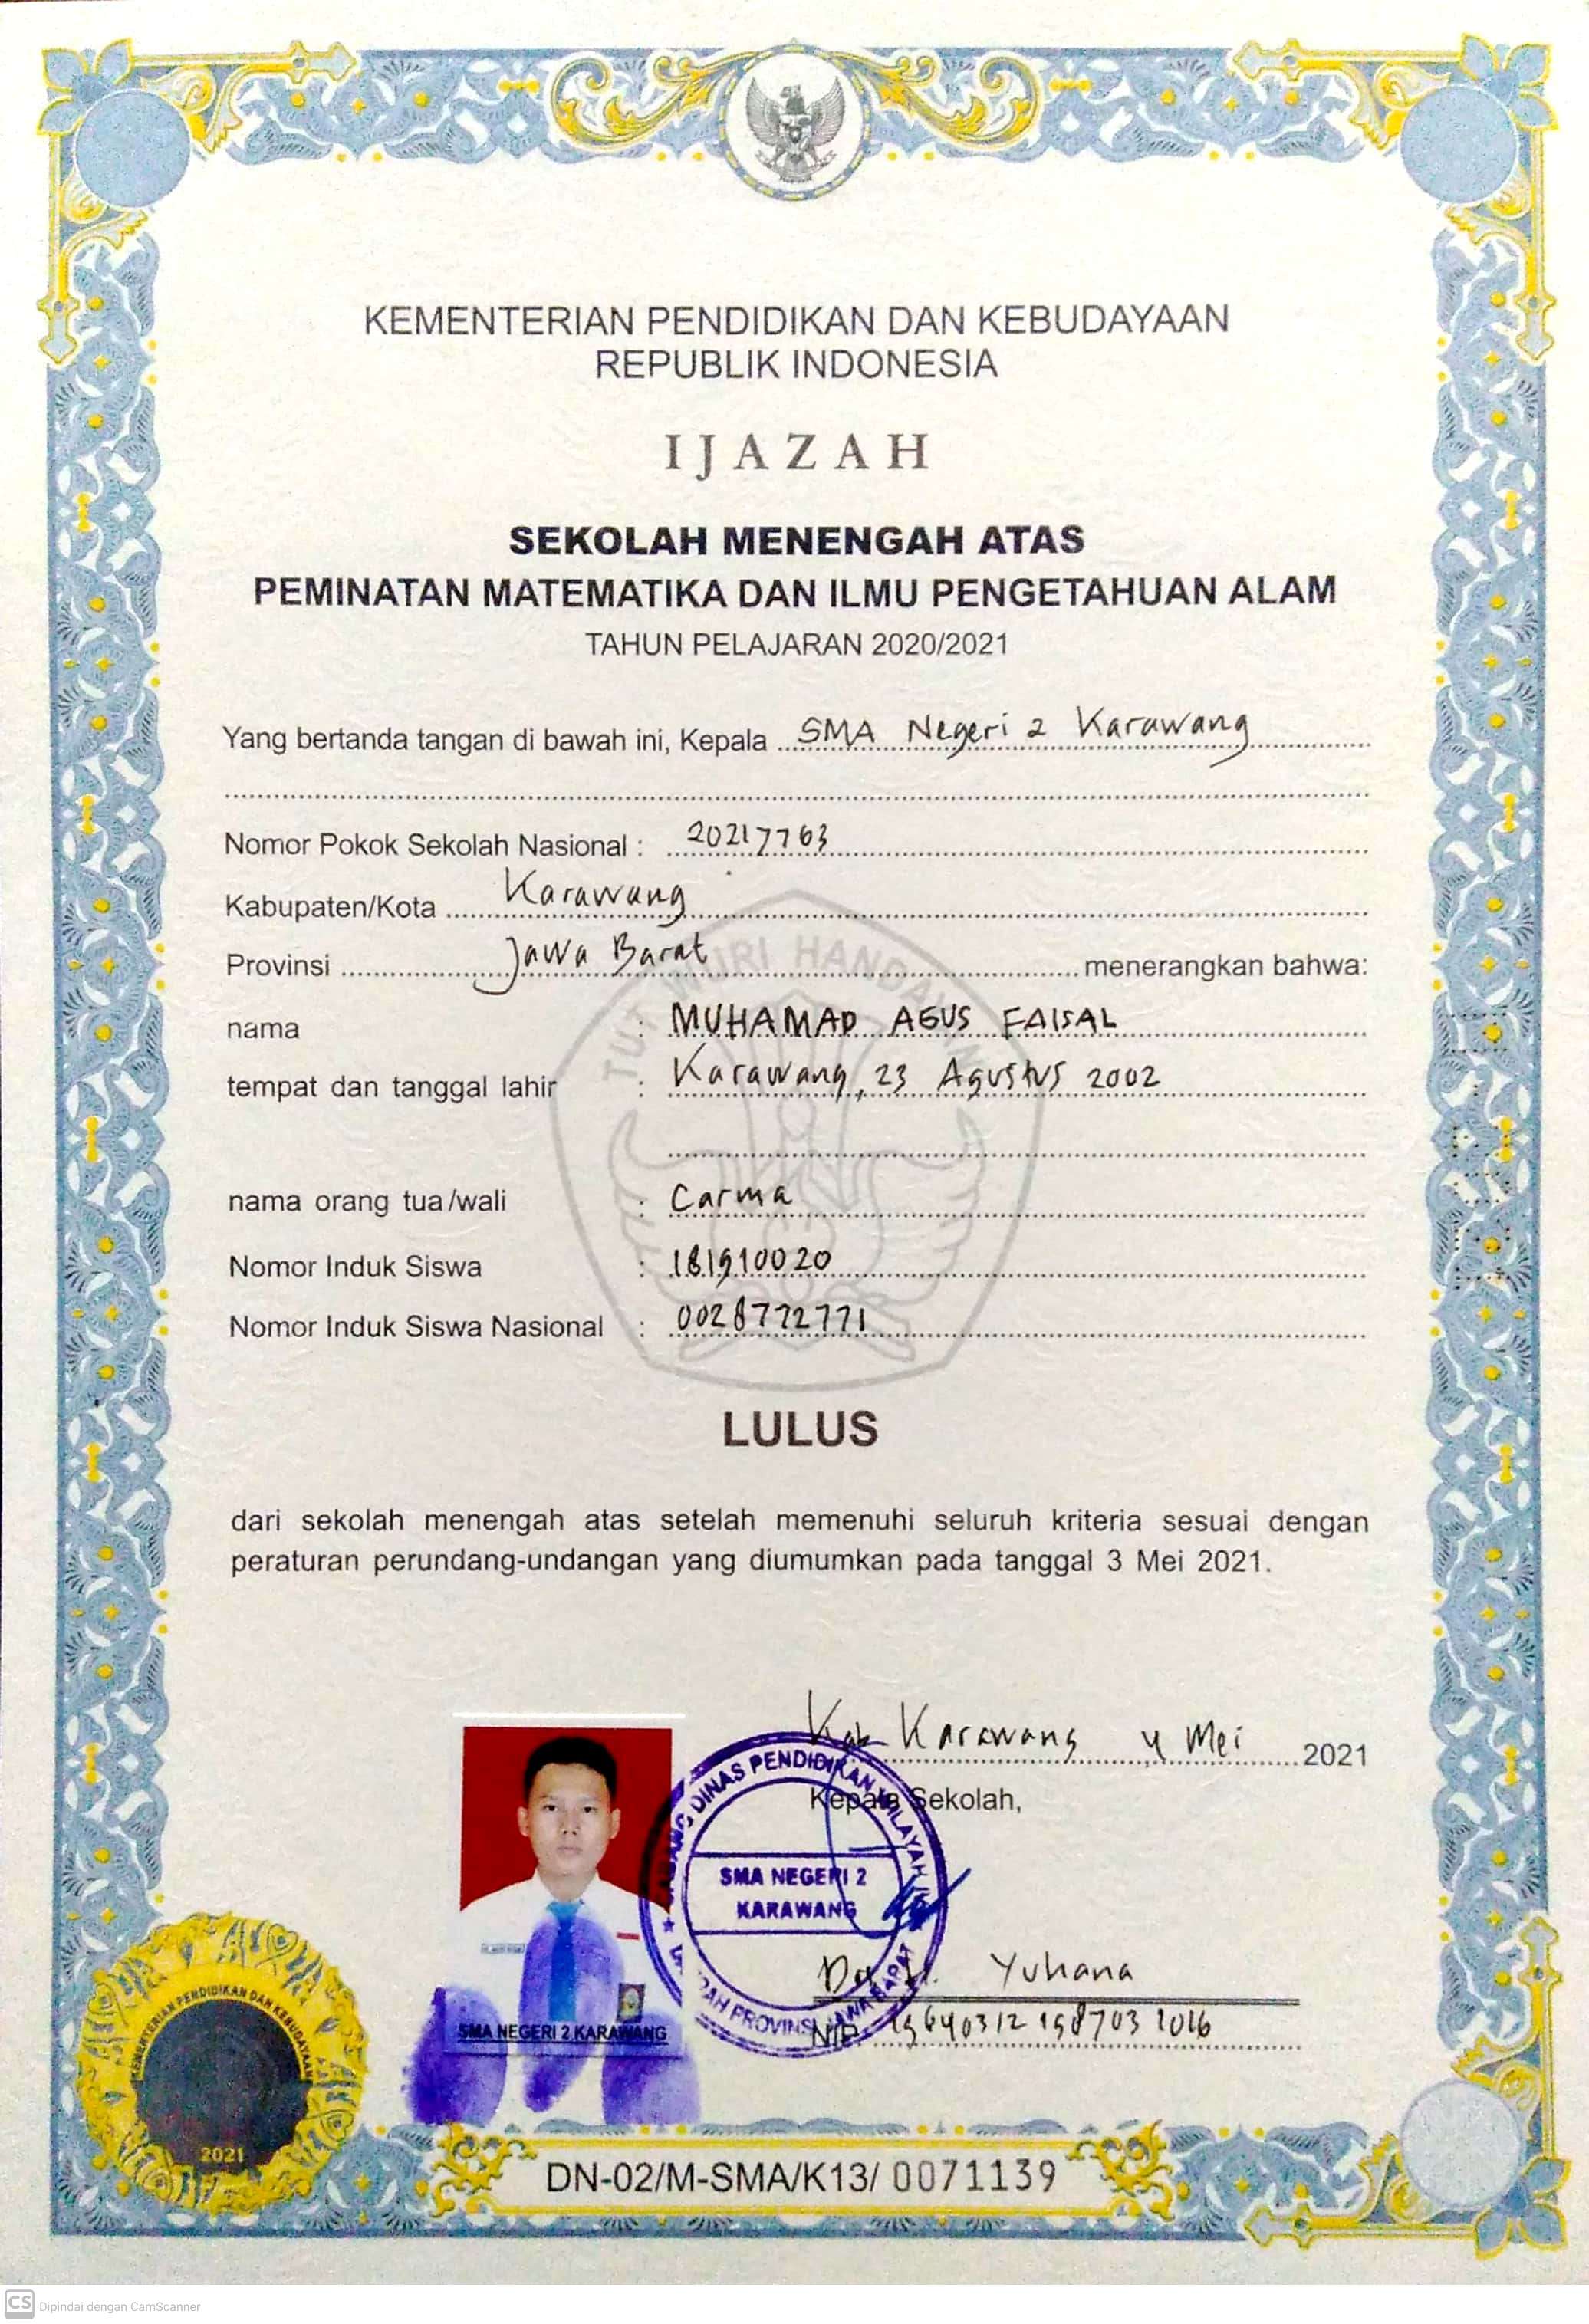 KEMENTERIAN PENDIDIKAN DAN KEBUDAYAAN
REPUBLIK INDONESIA
IJAZAH
SEKOLAH MENENGAH ATAS
PEMINATAN MATEMATIKA DAN ILMU PENGETAHUAN ALAM
TAHUN PELAJARAN 2020/2021
Yang bertanda tangan di bawah ini, Kepala SMA Negeri 2 Karawang
Nomor Pokok Sekolah Nasional : 20217763
Kabupaten/Kota Karawang
Provinsi Jawa Barat menerangkan bahwa:
TUT WURI HANDAYANI
nama : MUHAMAD AGUS FAISAL
tempat dan tanggal lahir : Karawang, 23 Agustus 2002
nama orang tua/wali : Carma
Nomor Induk Siswa : 181910020
Nomor Induk Siswa Nasional : 0028772771
LULUS
dari sekolah menengah atas setelah memenuhi seluruh kriteria sesuai dengan
peraturan perundang-undangan yang diumumkan pada tanggal 3 Mei 2021.
Kab Karawang 4 Mei 2021
Kepala Sekolah,
CABANG DINAS PENDIDIKAN WILAYAH
SMA NEGERI 2
KARAWANG
DAERAH PROVINSI JAWA BARAT
Yuhana
NIP. 19640312 198703 1016
SMA NEGERI 2 KARAWANG
KEMENTERIAN PENDIDIKAN DAN KEBUDAYAAN
2021
DN-02/M-SMA/K13/ 0071139
CS Dipindai dengan CamScanner